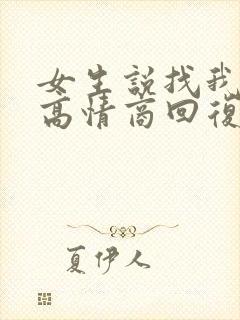 女生説找我
高情商回復
夏伊人